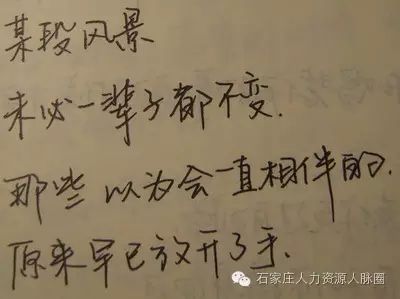 某段风景
未必一辈子都不变.
那些以为会一直相伴的.
原来早已放开了手.
石家庄人力资源人脉圈